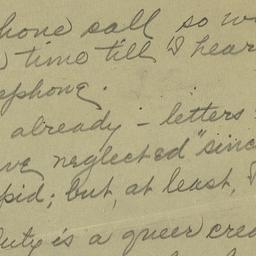 hone call so w
time till I hear
ephone.
already - letters
ve neglected "sinc
pid; but, at least, I
uty is a queer crea